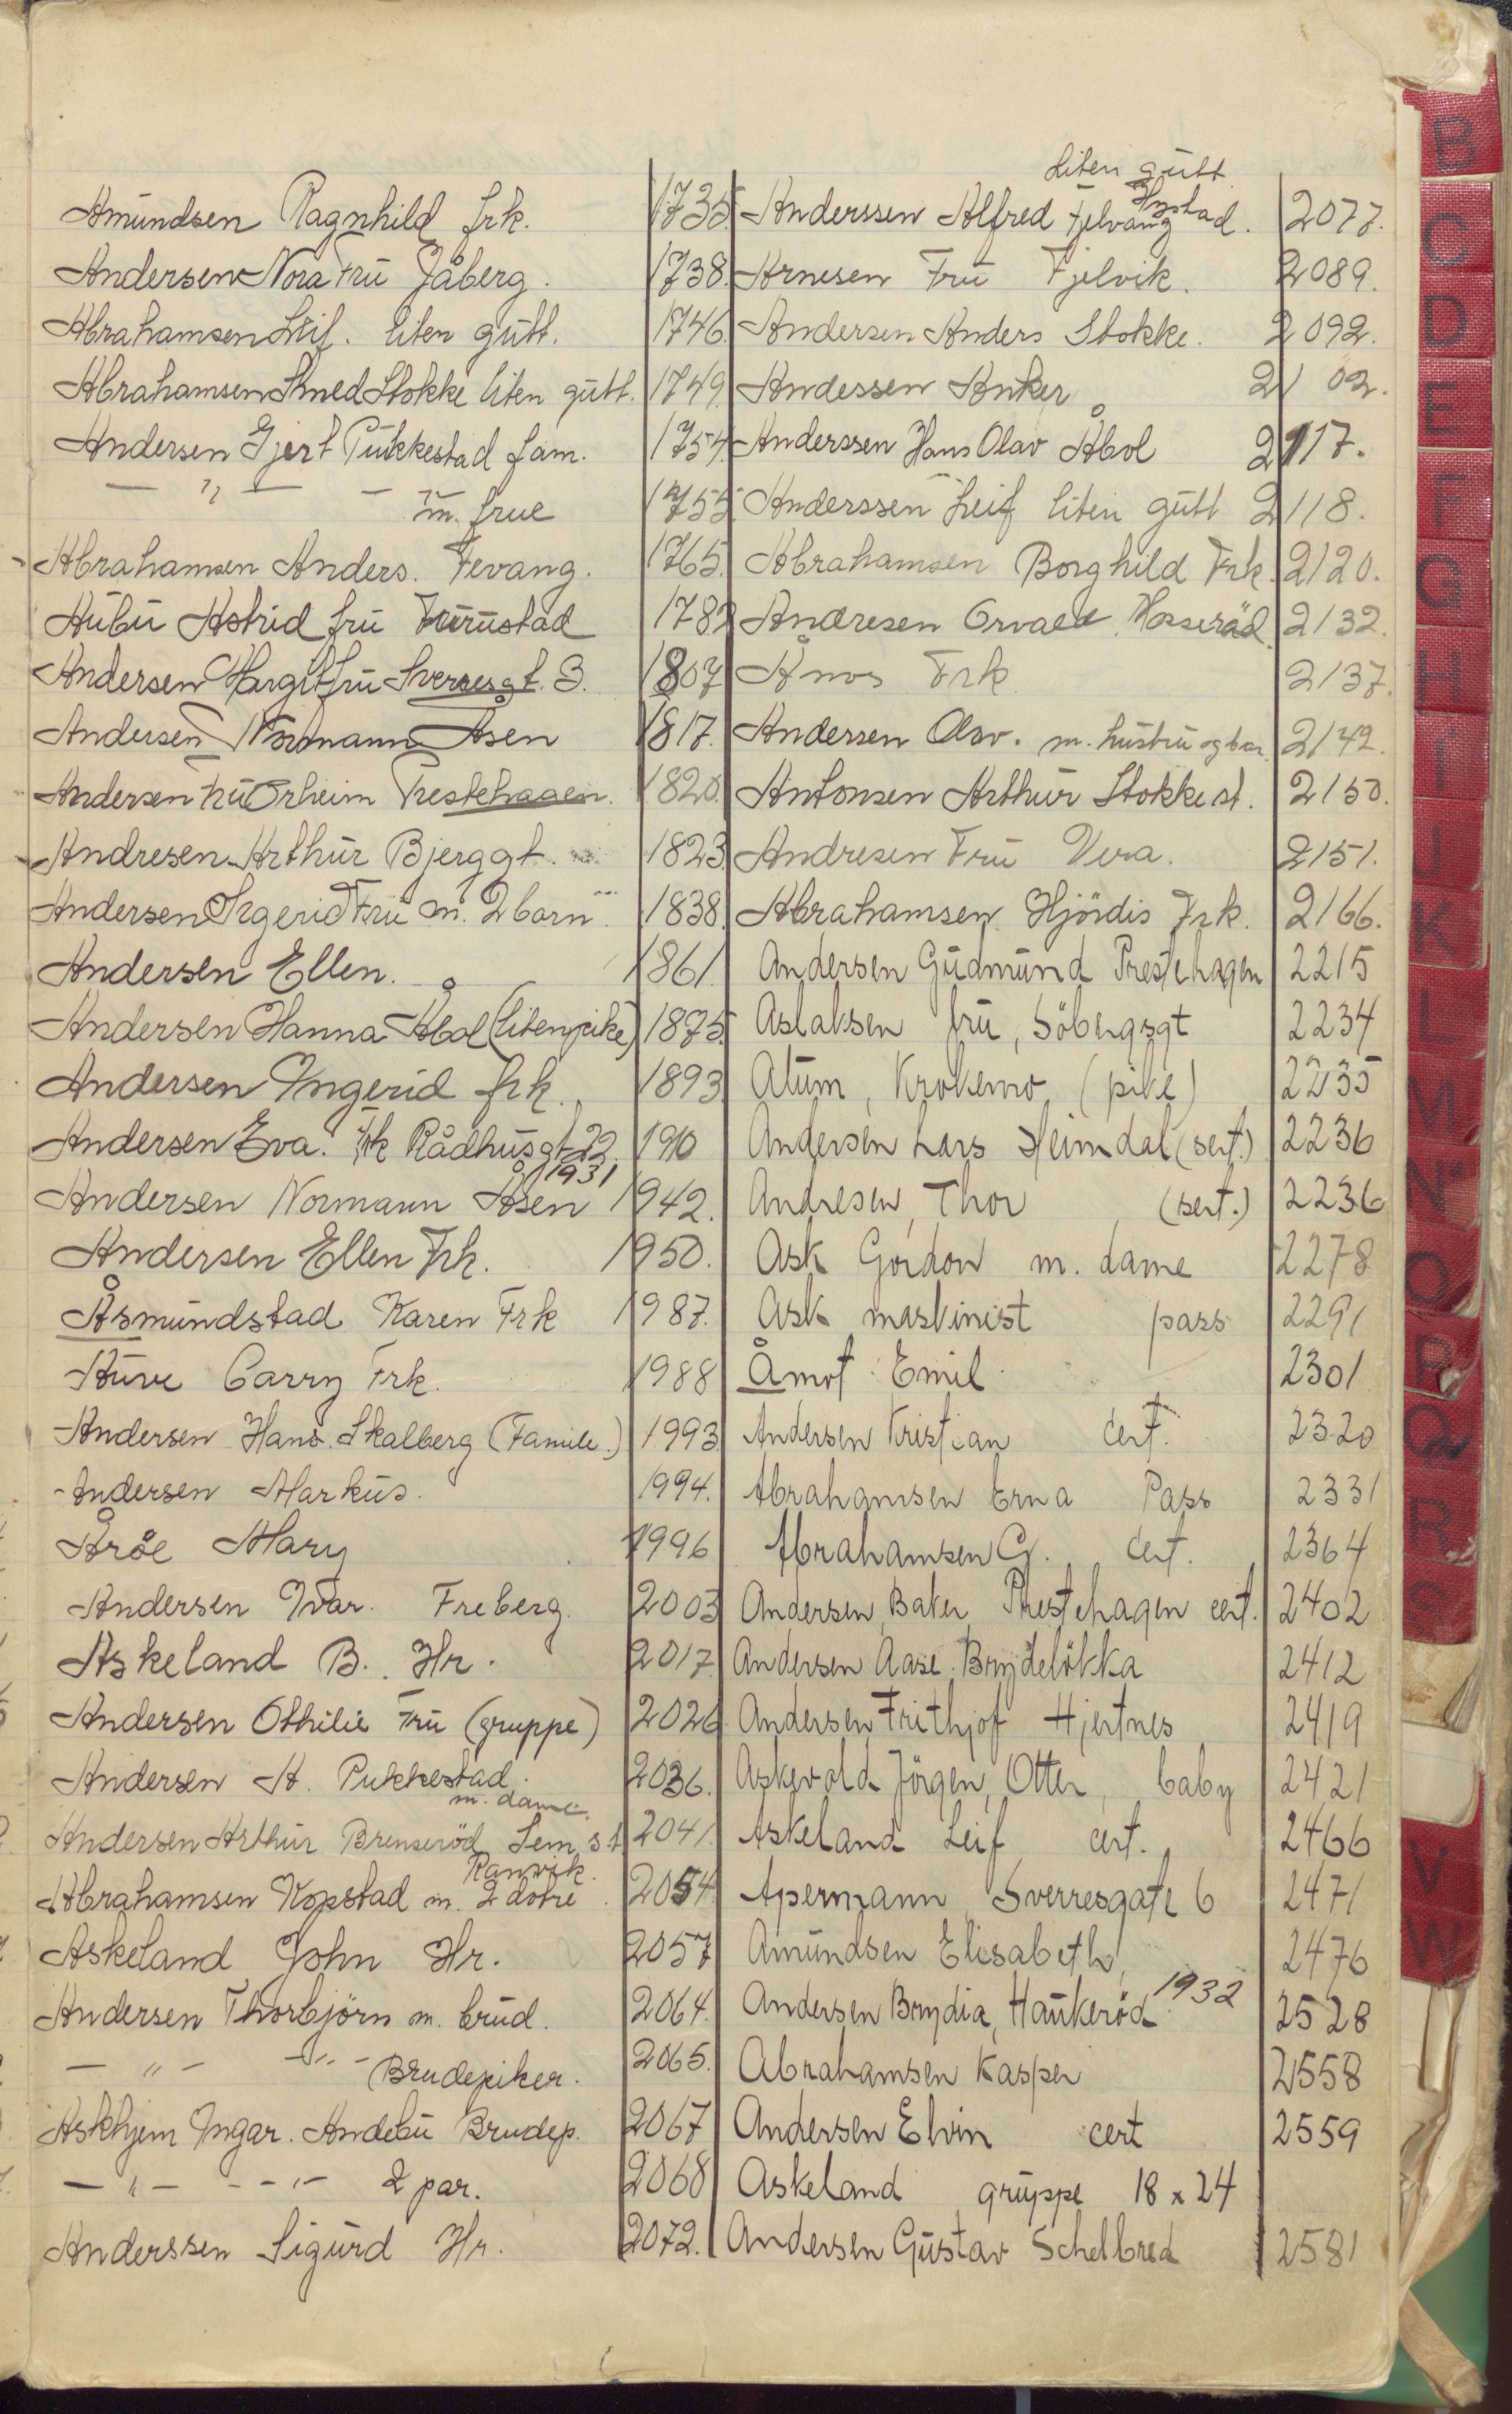 Amundsen Ragnhild frk. 1735.
Andersen Nora Fru Jåberg. 1738.
Abrahamsen Leif. liten gutt. 1746.
Abrahamsen Stokke liten gutt. 1749.
Andersen Gjert Pukkestad fam. 1754.
— " — — " — m. frue 1755.
Abrahamsen Anders. Fevang. 1765.
Aubu Astrid fru Furustad 1782
Andersen Margit fru Sverresgt. 3. 1807
Andersen Normann Åsen 1817.
Andersen fru Orheim Prestehagen. 1820.
Andresen Arthur Bjerggt. 1823
Andersen Ingerid Fru m. 2 barn. 1838.
Andersen Ellen. 1861
Andersen Hanna Åbol (liten pike) 1875.
Andersen Yngerid frk. 1893
Andersen Eva. Frk Rådhusgt 22. 1910
1931
Andersen Normann Åsen 1942.
Andersen Ellen Frk. 1950.
Åsmundstad Karen Frk 1987.
Auve Carry Frk. 1988
Andersen Hans. Skalberg (Famile.) 1993
Andersen Markus. 1994.
Årøe Mary 1996
Andersen Ivar. Freberg. 2003
Askeland B. Hr. 2017.
Andersen Othilie Fru (gruppe) 2026
Andersen A. Pukkestad. 2036.
m. dame.
Andersen Arthur Brenseröd Sem st 2041.
Ranvik.
Abrahamsen Kopstad m. 2 dotre. 2054
Askeland John Hr. 2057
Andersen Thorbjörn m. brud. 2064.
— " — — " — Brudepiker. 2065.
Askhjem Yngar. Andebu Brudep. 2067
— " — — " — 2 par. 2068
Anderssen Sigurd Hr. 2072.
liten gutt
Hystad
Anderssen Alfred Fjelvang. 2077.
Arnesen Fru Fjelvik. 2089.
Andersen Anders Stokke. 2092.
Andessen Anker 2102.
Anderssen Hans Olav Åbol 2117.
Anderssen Leif liten gutt 2118.
Abrahamsen Borghild Frk. 2120.
Andresen Orvald Hasseröd. 2132.
Åmos Frk 2137.
Andersen Olav. m. hustru og bar. 2142.
Antonsen Arthur Stokke st. 2150.
Andresen Fru Vera. 2151.
Abrahamsen Hjördis Frk. 2166.
Andersen Gudmund Prestehagen 2215
Aslaksen fru, Söbergsgt 2234
Atum, Krokemo, (pike) 2235
Andersen Lars Heimdal (sert.) 2236
Andresen, Thor (sert.) 2236
Ask Gordon m. dame 2278
Ask maskinist pass 2291
Åmot Emil 2301
Andersen Kristian Cert. 2320
Abrahamsen Erna Pass 2331
Abrahamsen G. Cert. 2364
Andersen, Baker Prestehagen cert. 2402
Andersen Aase. Brydelökka 2412
Andersen Frithjof Hjertnes 2419
Askevold Jörgen, Otter, baby 2421
Askeland Leif cert. 2466
Apermann Sverresgate 6 2471
Amundsen Elisabeth, 2476
1932
Andersen Brydia, Haukeröd 2528
Abrahamsen Kasper 2558
Andersen Elvin cert 2559
Askeland gruppe 18 x 24
Andersen Gustav Schelbred 2581
B
C
D
E
F
G
H
I
J
K
L
M
N
O
P
Q
R
S
V
W